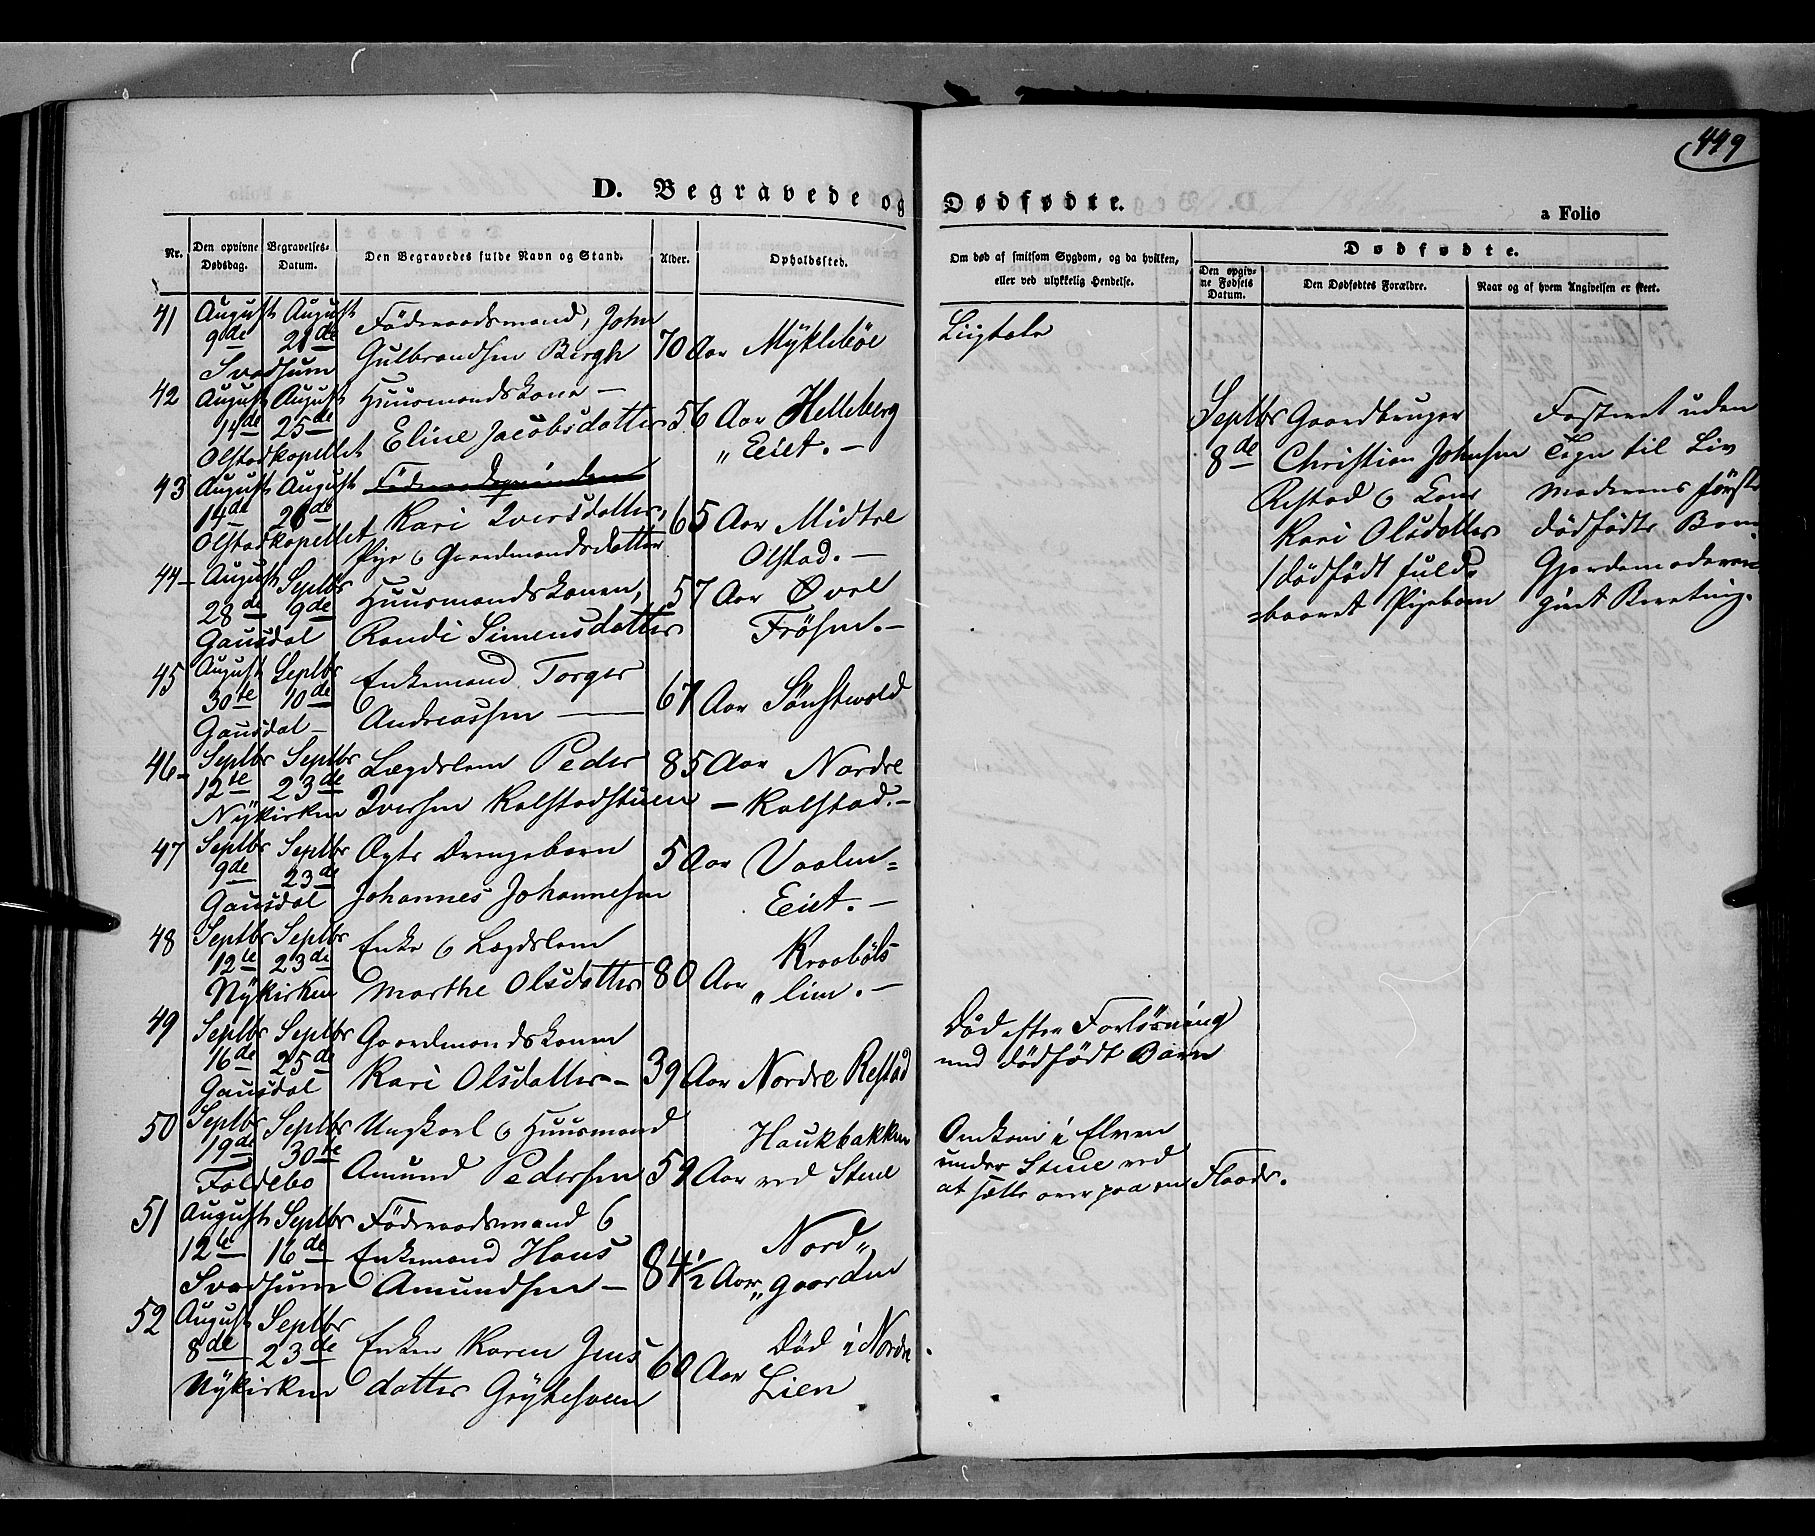 449
D. Begravede og Dødfødte.
a Folio
Nr.
Den opgivne Dødsdag.
Begravelses-Datum.
Den Begravedes fulde Navn og Stand.
Alder.
Opholdssted.
Om død af smitsom Sygdom, og da hvilken,
eller ved ulykkelig Hendelse.
Dødfødte.
Den opgivne Fødsels Datum.
Den Dødfødtes Forældre.
Naar og af hvem Angivelsen er skeet.
41 August August Föderaadsmand, John
9de 21de Gulbrandsen Bergh 70 Aar Mÿkleböe Liigtale
Svadsum
42 August August Huusmandskone —
14de 25de Eline Jacobsdatter 56 Aar Helleberg
Olstadkapellet „Eiet. —
43 August August Föderaadsqvinden
14de 28de Kari Iversdatter, 65 Aar Midtre
Olstadkapellet Pige & Gaardmandsdatter Olstad. —
44 – August Septbr Huusmandskonen, 57 Aar Øvre
28de 9de
Gausdal Randi Simensdatter Fröysen. –
45 August Septbr Enkemand Torger
30te 10de Andreassen — 67 Aar Sönstevold
Gausdal –
46 – Septbr Septbr Lægdslem Peder 85 Aar Nordre
12te 23de
Nÿkirken Iversen Kalstadstuen – Kalstad. –
47 Septbr Septbr Ægte Drengebarn 5 Aar Vaalen=
9de 23de
Gausdal Johannes Johannesen Eiet. –
48 Septbr Septbr Enke & Lægdslem Kraaböls
12te 23de
Nÿkirken Marthe Olsdatter 80 Aar „lien. –
49 Septbr Septbr Gaardmandskonen Död efter Forlösning
16de 25de med dödfödt Barn
Gausdal Kari Olsdatter – 39 Aar Nordre Restad
50 Septbr Septbr Ungkarl & Huusmand Haukbakken Omkom i Elven
19de 30te Amund Pedersen 59 Aar ved Steine under Steine ved
Foldebo at sætte over paa en Flaade.
51 August Septbr Föderaadsmand &
12te 16de Enkemand Hans 84½ Aar Nord„
Svadsum Amundsen – „gaarden
52 August Septbr
8de 23de Enken Karen Jens 60 Aar Död i Nordre
Nÿkirken datter Grÿtesveen Lien
Septbr Gaardbruger Fosteret uden
8de Christian Johnsen Tegn til Liv
Restad & Kone Moderens förste
Kari Olsdatter dödfödte Barn
1 dödfödt fuld= Gjordemoderen
=baaret Pigebarn givet Beretning.